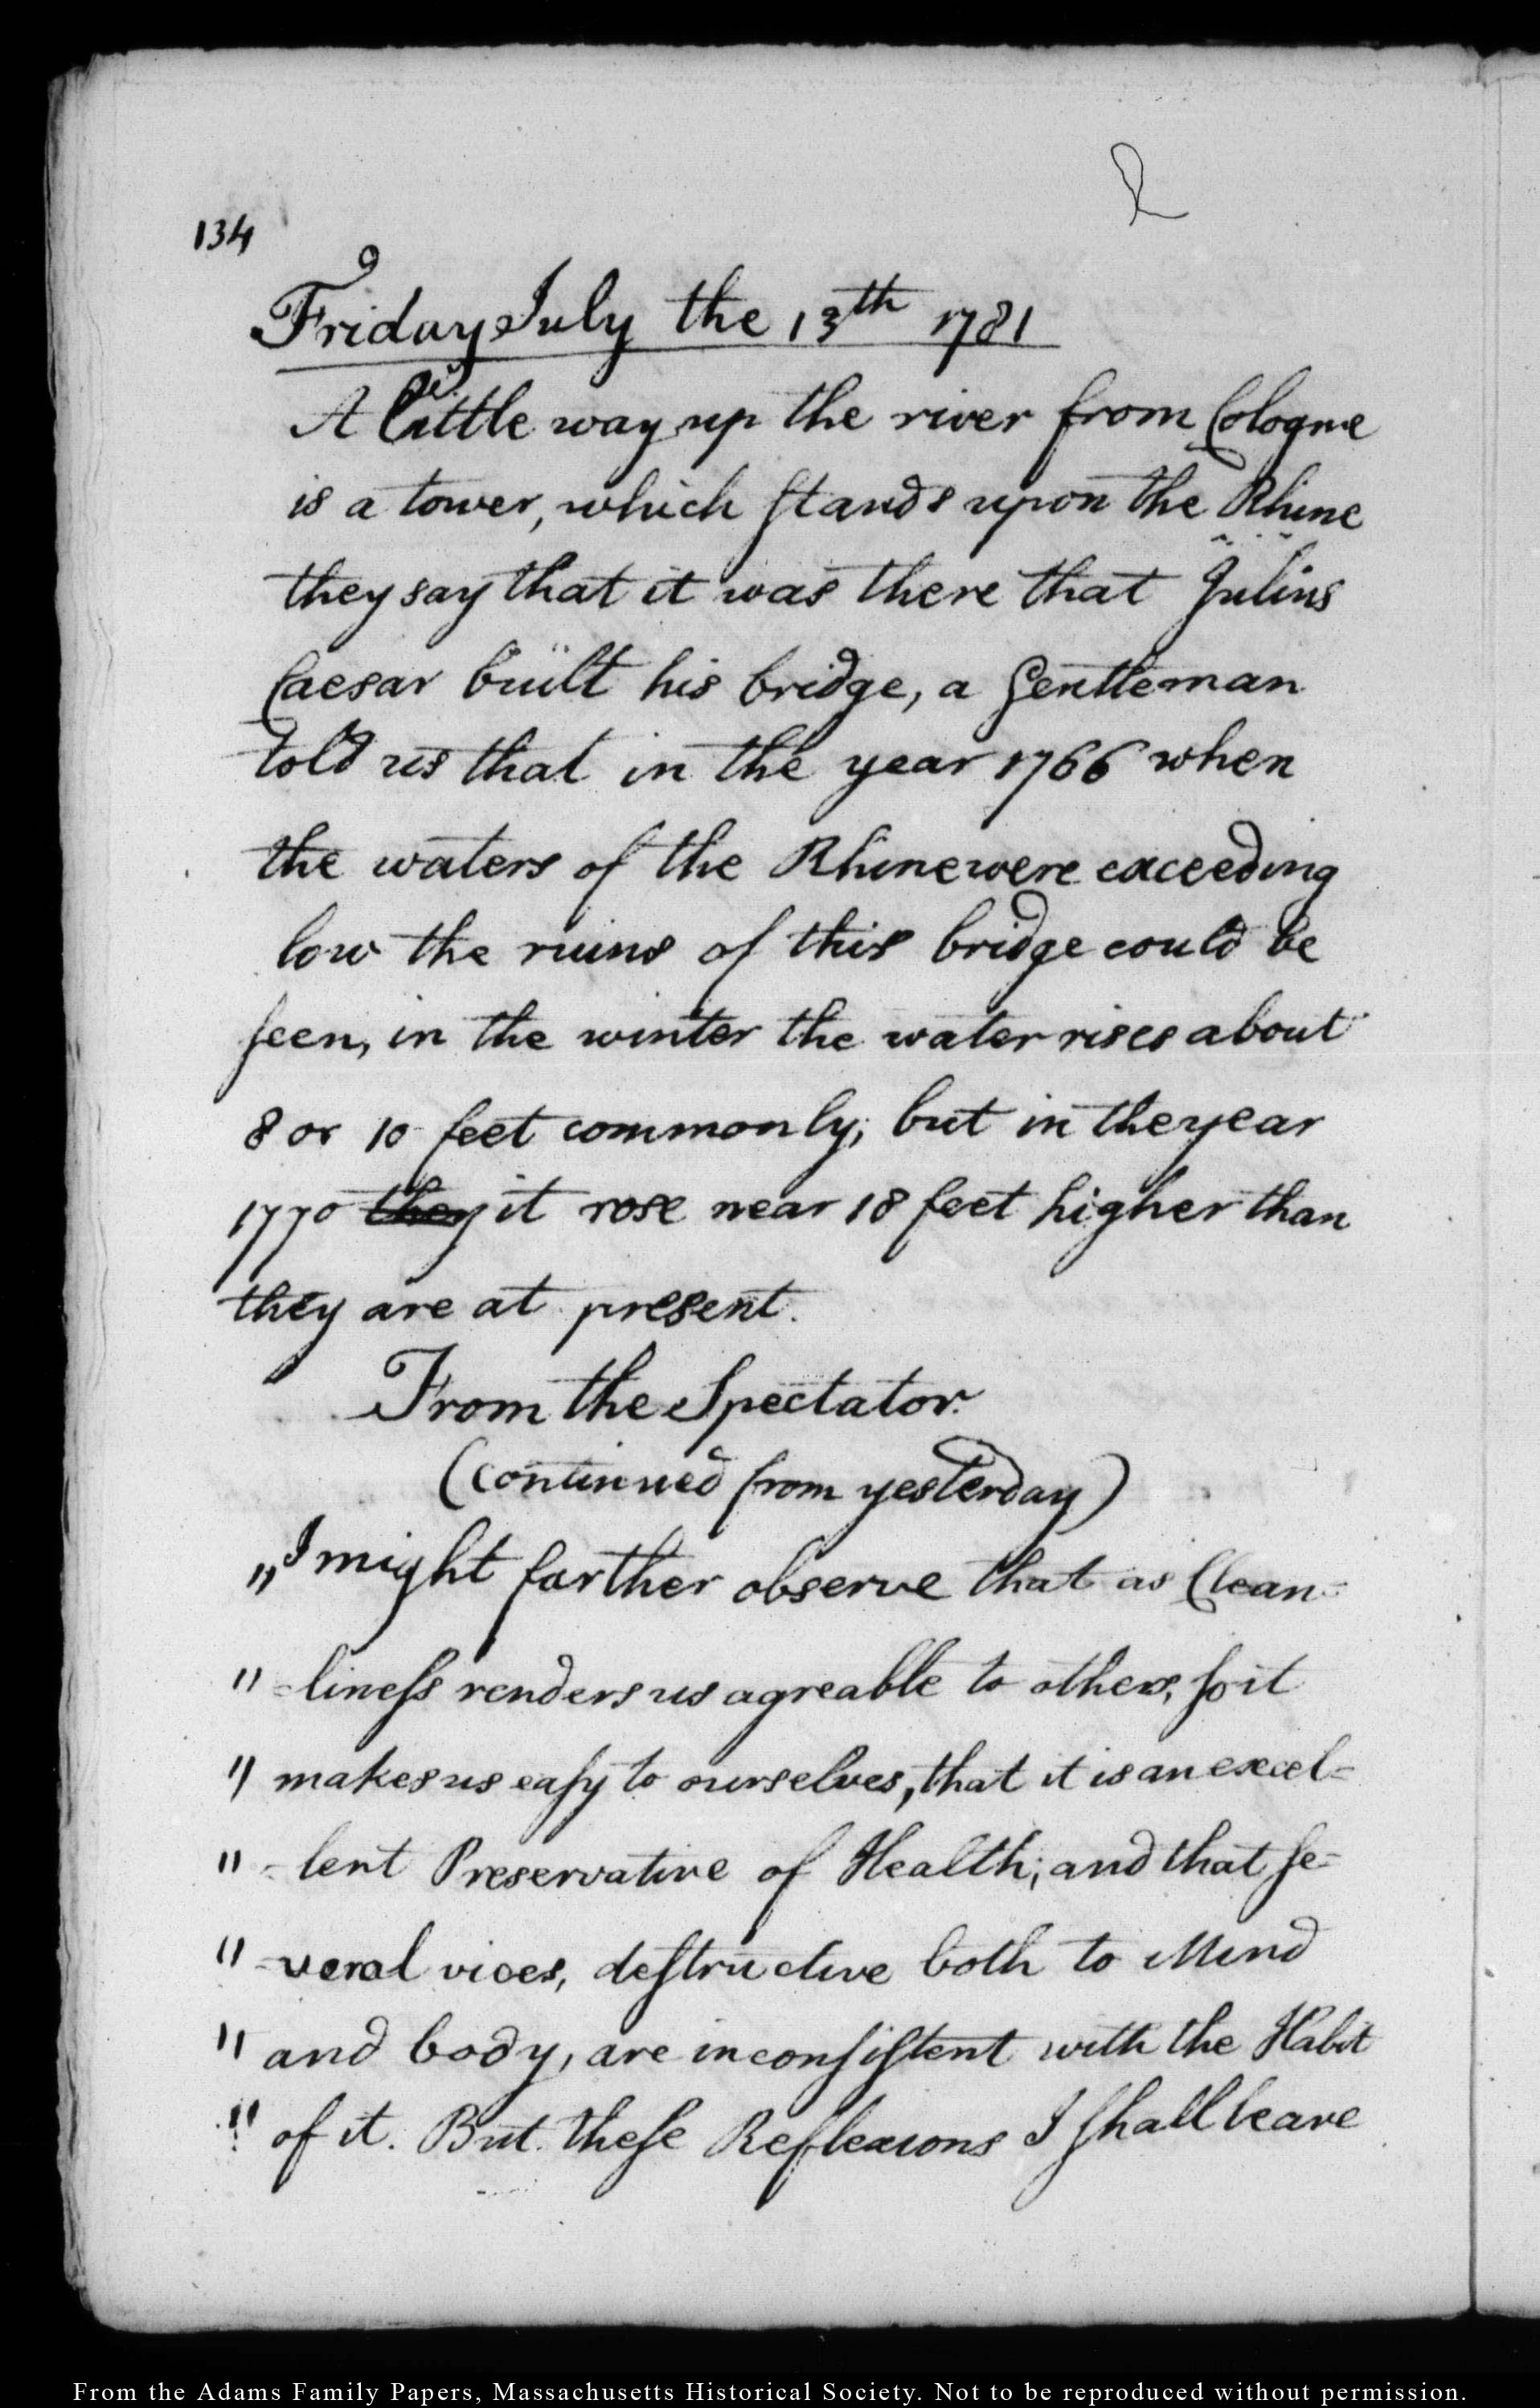 134
Friday July the 13th 1781
A little way up the river from Cologne
is a tower, which ſtands upon the Rhine
they say that it was there that Julius
Caesar built his bridge, a Gentleman
told us that in the year 1766 when
the waters of the Rhine were exceeding
low the ruins of this bridge could be
ſeen, in the winter the water rises about
8 or 10 feet commonly; but in the year
1770 they it rose near 18 feet higher than
they are at present.
From the Spectator.
(continued from yesterday)
„I might farther observe that as Clean=
" =lineſs renders us agreable to others, ſo it
" makes us eaſy to ourselves, that it is an excel=
" =lent Preservative of Health; and that ſe=
" =veral vices, deſtructive both to Mind
" and body, are inconſiſtent with the Habit
" of it. But theſe Reflexions I ſhall leave
From the Adams Family Papers, Massachusetts Historical Society. Not to be reproduced without permission.